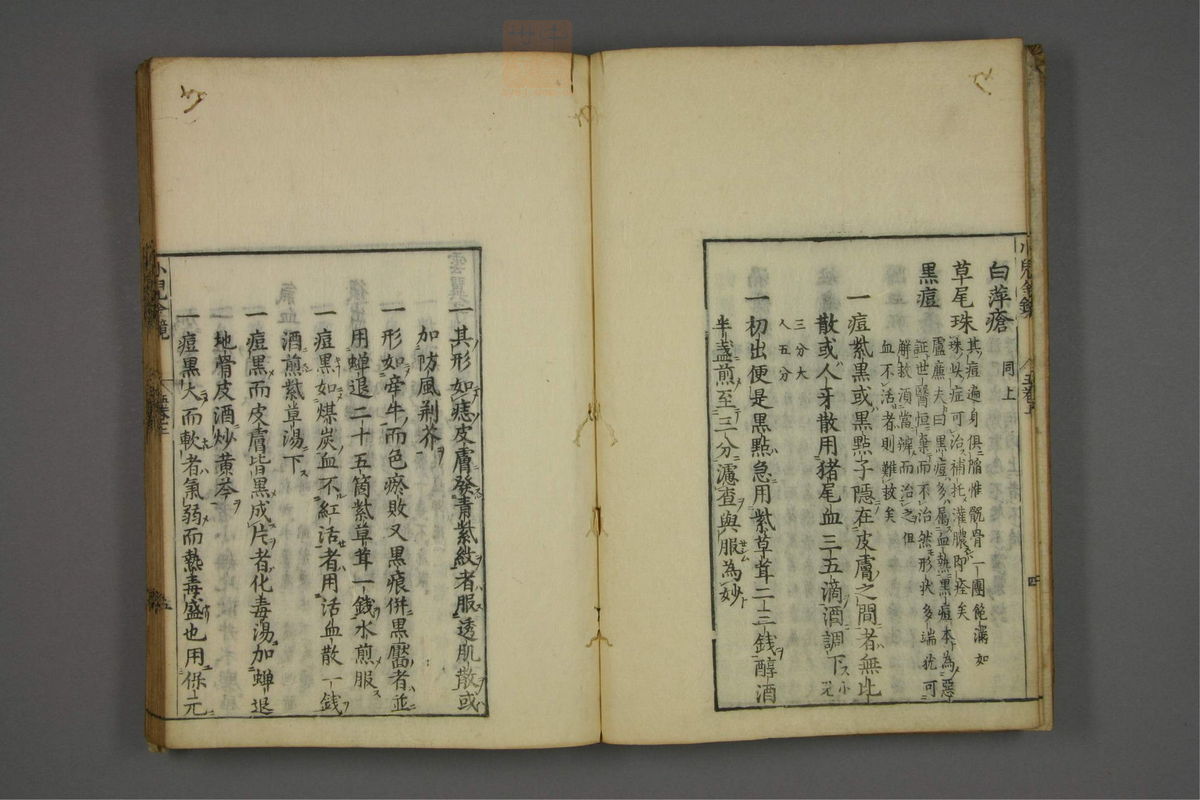 白萍瘡 同上
草尾珠 其痘遍身俱陷惟髖骨一團飽滿如
珠此症可治補托灌膿即痊矣
黒痘 盧廉夫曰黒痘多属血熱黒痘本為惡
証世醫恒棄而不治然形状多端猶可
觧救須當辨而治之但
血不活者則難救矣
一痘紫黒或黒點子隱在皮膚之間者無比
散或人牙散用猪尾血三五滴酒調下 小児
三分大
人五分
一初出便是黒點急用紫草茸二三錢醇酒
半盞煎至三分濾査與服為妙
一其形如痣皮膚發青紫紋者服透肌散或
加防風荊芥
一形如牽牛而色瘀敗又黒痕併黒靨者並
用蟬退二十五箇紫草茸一錢水煎服
一痘黒如煤炭血不紅活者用活血散一錢
酒煎紫草湯下
一痘黒而皮膚皆黒成片者化毒湯加蟬退
地骨皮酒炒黄芩
一痘黒大而軟者氣弱而熱毒盛也用保元